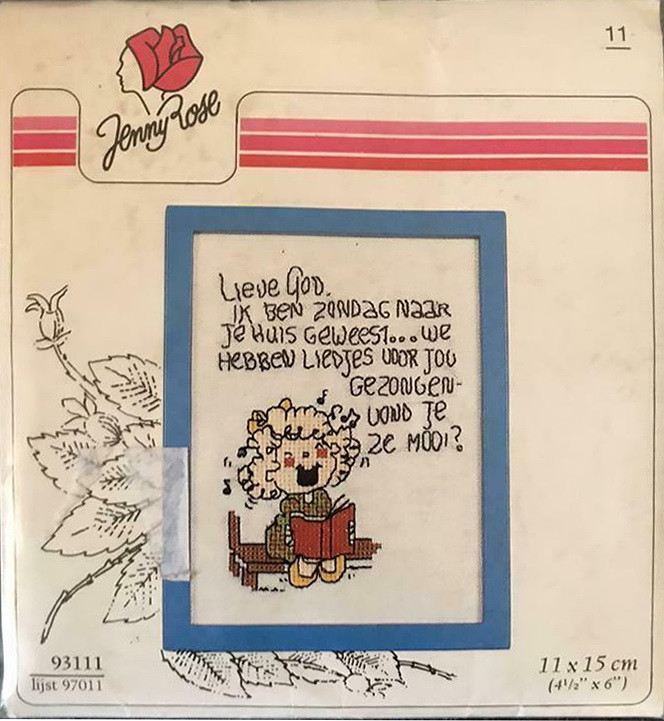 11
Jenny Rose
Lieve God,
ik ben zondag naar
je huis geweest...we
hebben liedjes voor jou
gezongen-
vond je
ze mooi?
93111
lijst 97011
11 x 15 cm
(4 1/2" x 6")